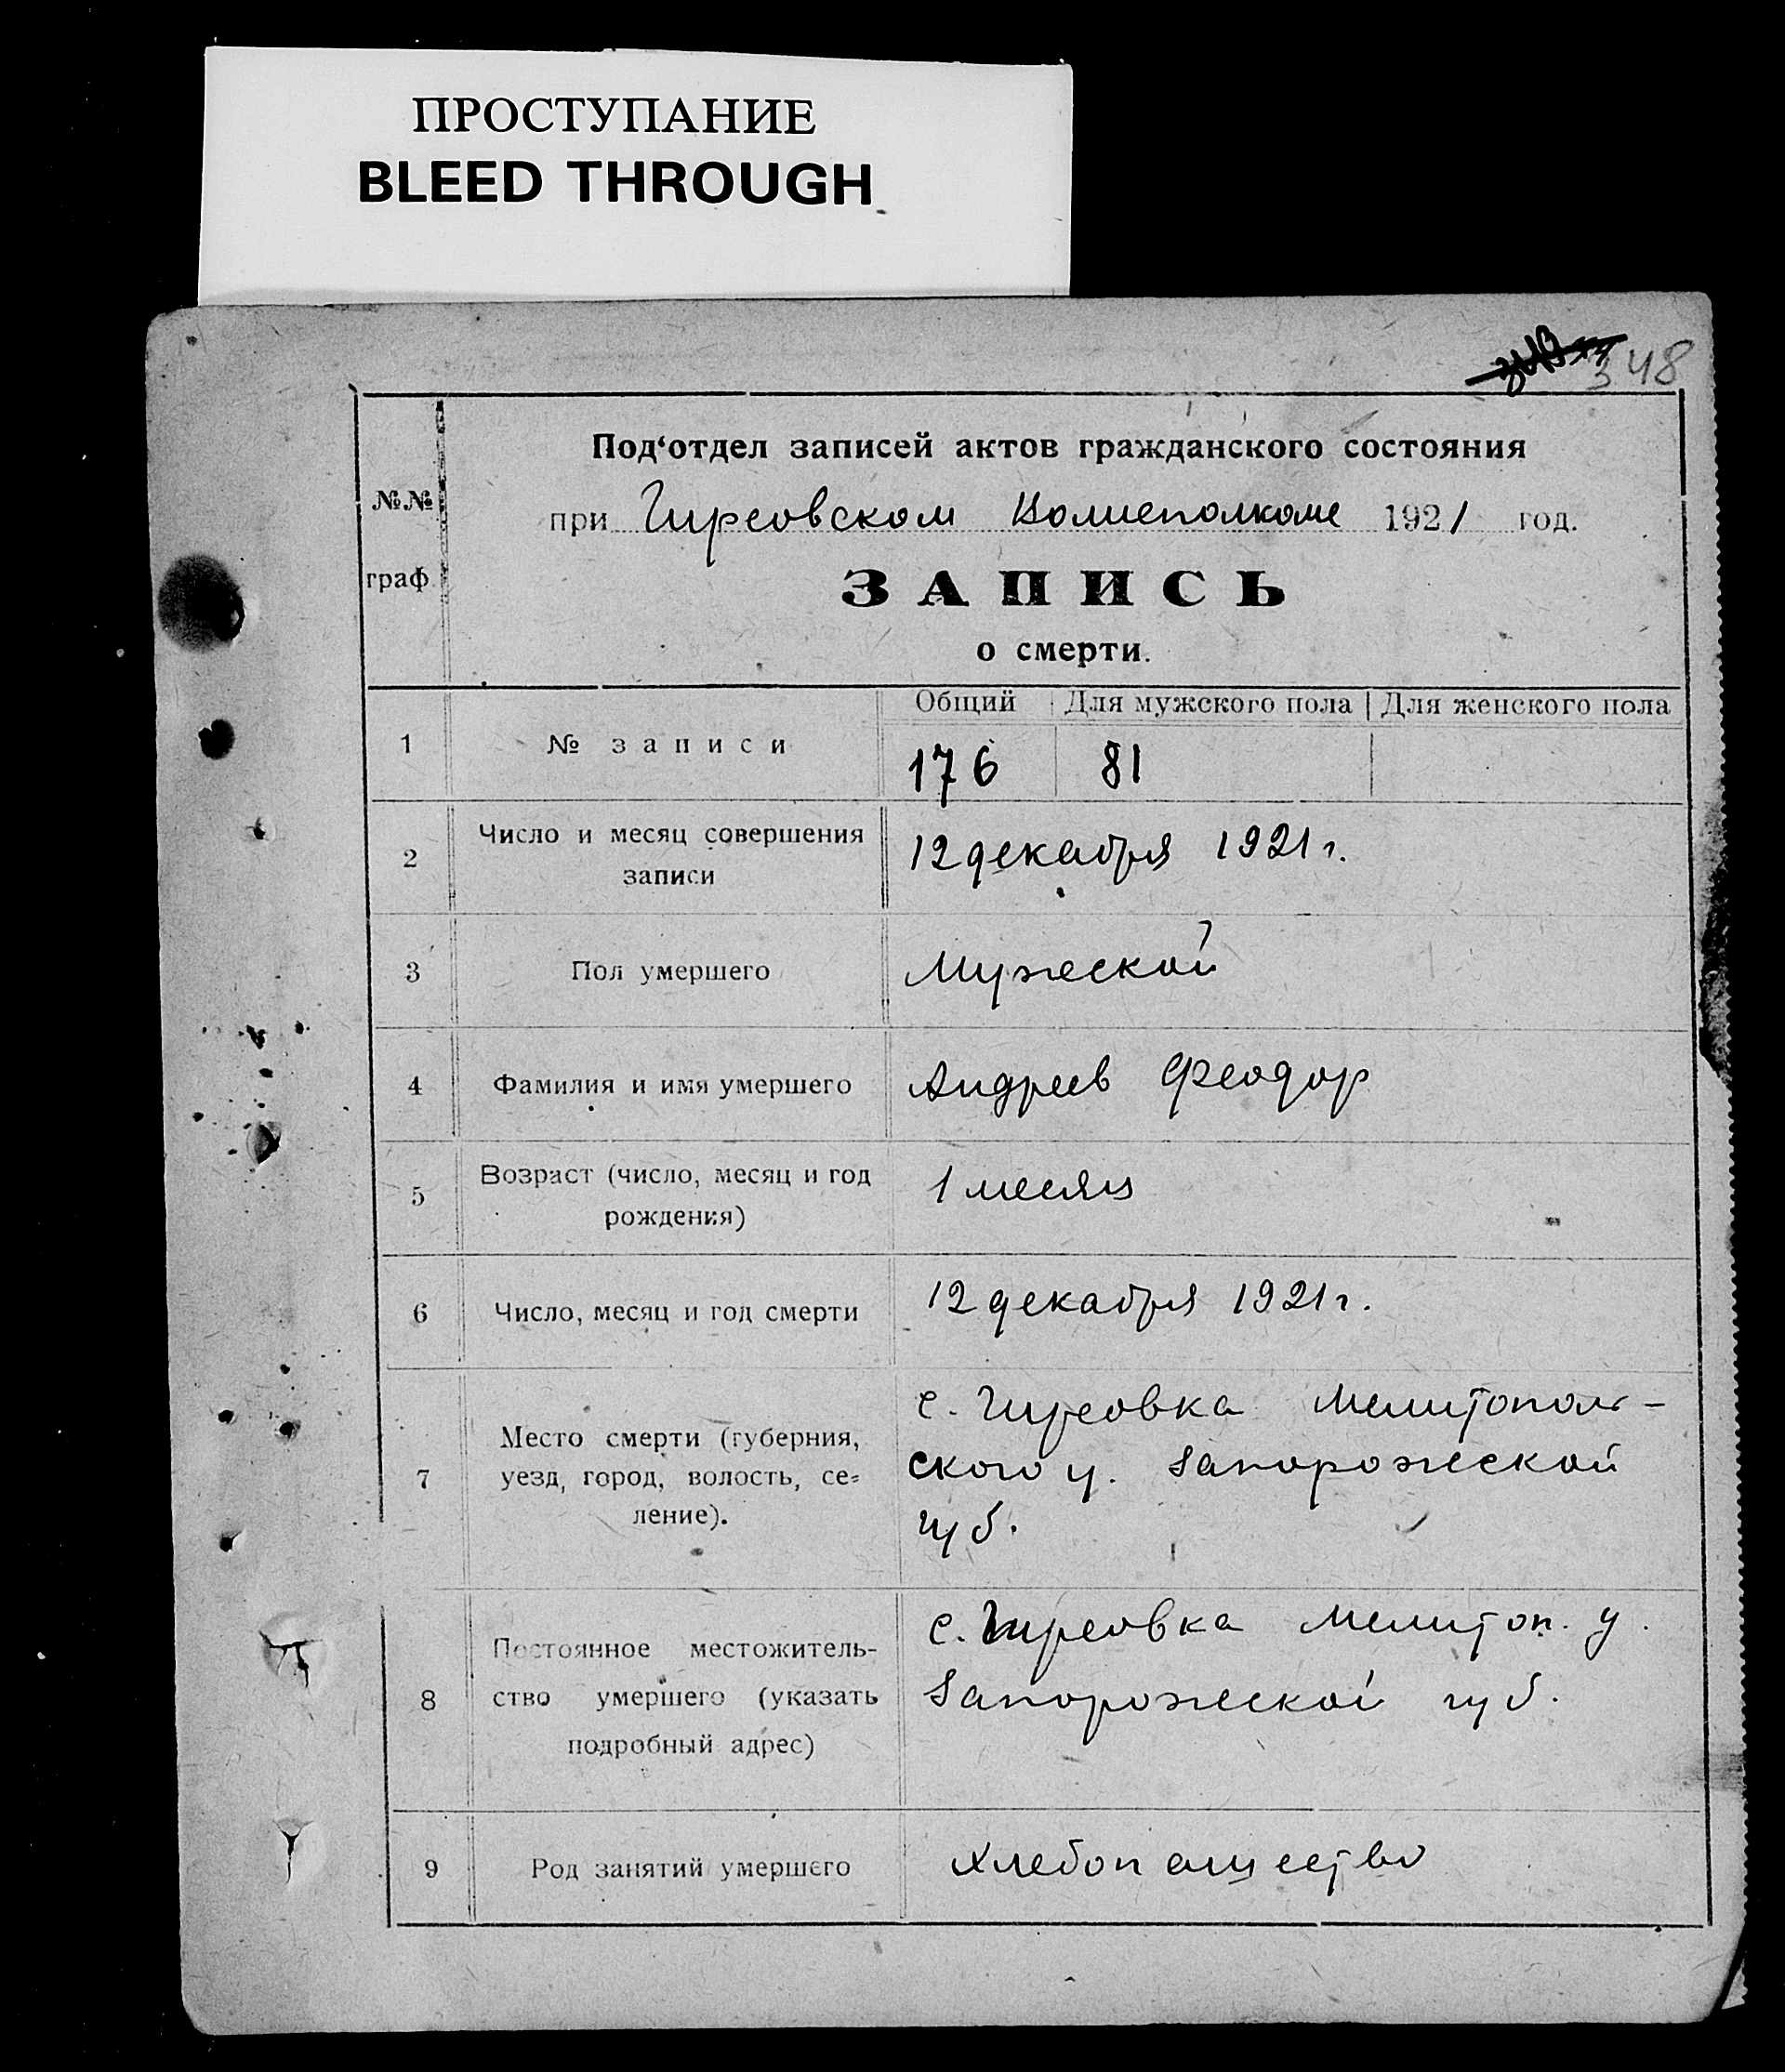 ПРОСТУПАНИЕ
BLEED THROUGH
348
Под‘отдел записей актов гражданского состояния
№№
при Гиреовском Волисполкоме 1921 год.
граф.
ЗАПИСЬ
о смерти.
Общий Для мужского пола Для женского пола
1 № записи 176 81
2 Число и месяц совершения
записи
12 декабря 1921 г.
3 Пол умершего Мужеской
4 Фамилия и имя умершего Андреев Феодор
5 Возраст (число, месяц и год
рождения)
1 месяц
6 Число, месяц и год смерти 12 декабря 1921 г.
7 Место смерти (губерния,
уезд, город, волость, се-
ление).
с. Гиреовка Мелитополь-
ского у. Запорожеской
губ.
8 Постоянное местожитель-
ство умершего (указать
подробный адрес)
с. Гиреовка Мелитоп. у.
Запорожеской губ.
9 Род занятий умершего Хлебопашество